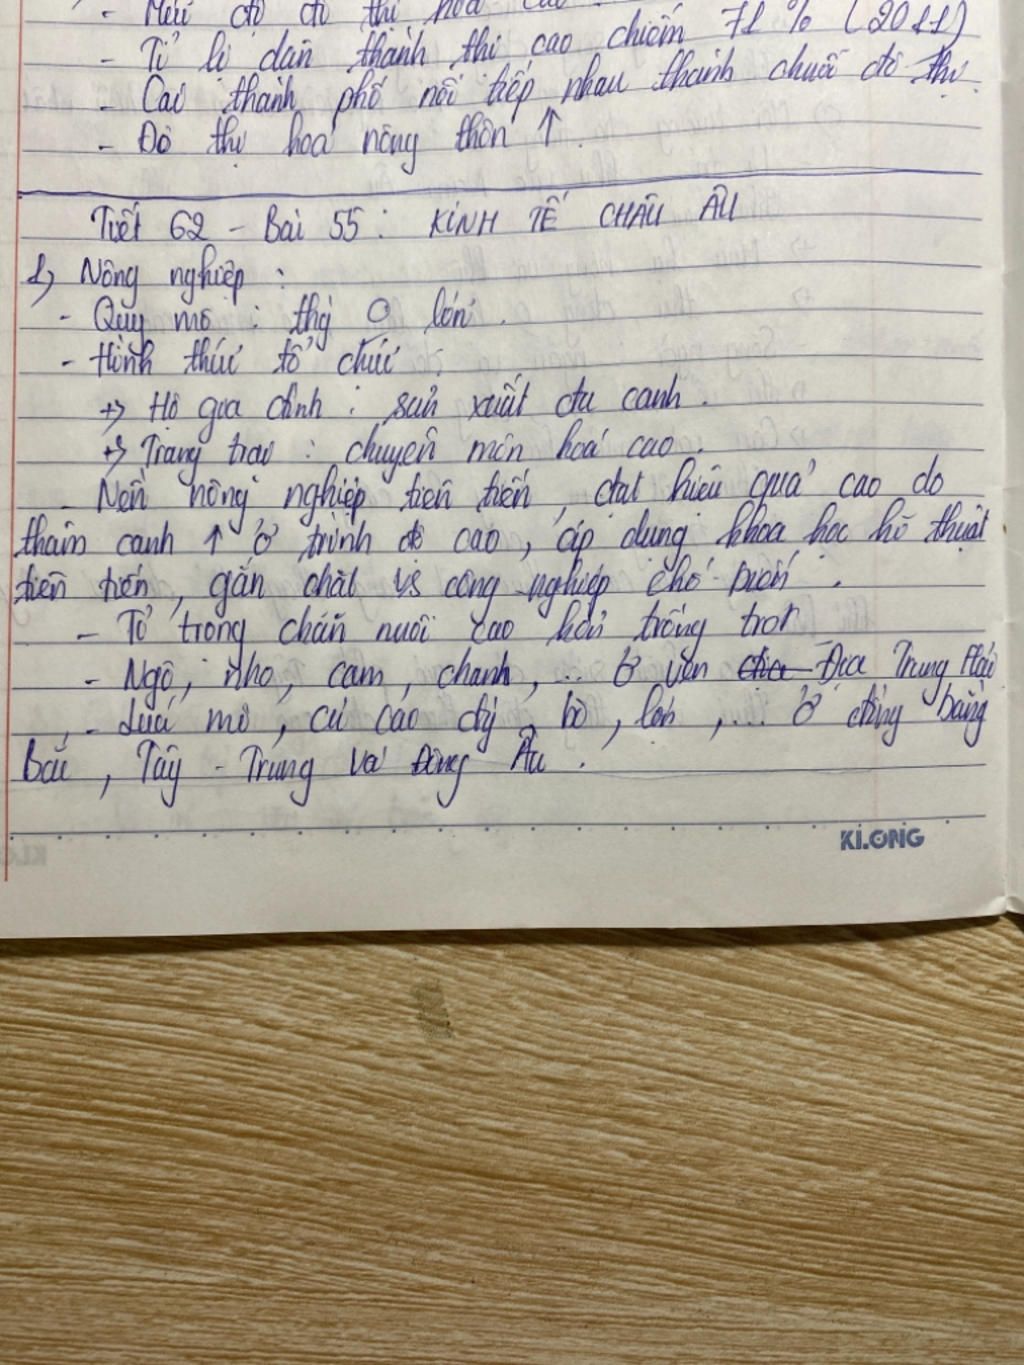 - Mức độ đô thị hoá cao
- Tỉ lệ dân thành thị cao, chiếm 71% (2011)
- Các thành phố nối tiếp nhau thành chuỗi đô thị
- Đô thị hoá nông thôn ↑.
Tiết 62 - Bài 55: KINH TẾ CHÂU ÂU
1) Nông nghiệp:
- Quy mô: thg O lớn.
- Hình thức tổ chức:
+> Hộ gia đình: sản xuất đa canh.
+> Trang trại: chuyên môn hoá cao.
- Nền nông nghiệp tiên tiến, đạt hiệu quả cao do
thâm canh ↑ ở trình độ cao, áp dụng khoa học kĩ thuật
tiên tiến, gắn chặt vs công nghiệp chế biến.
- Tỉ trọng chăn nuôi cao hơn trồng trọt
- Ngô, nho, cam, chanh,... ở ven Địa Trung Hải
- Lúa mì, củ cải đg, bò, lợn,... ở đồng bằng
Bắc, Tây - Trung và Đông Âu.
KLONG